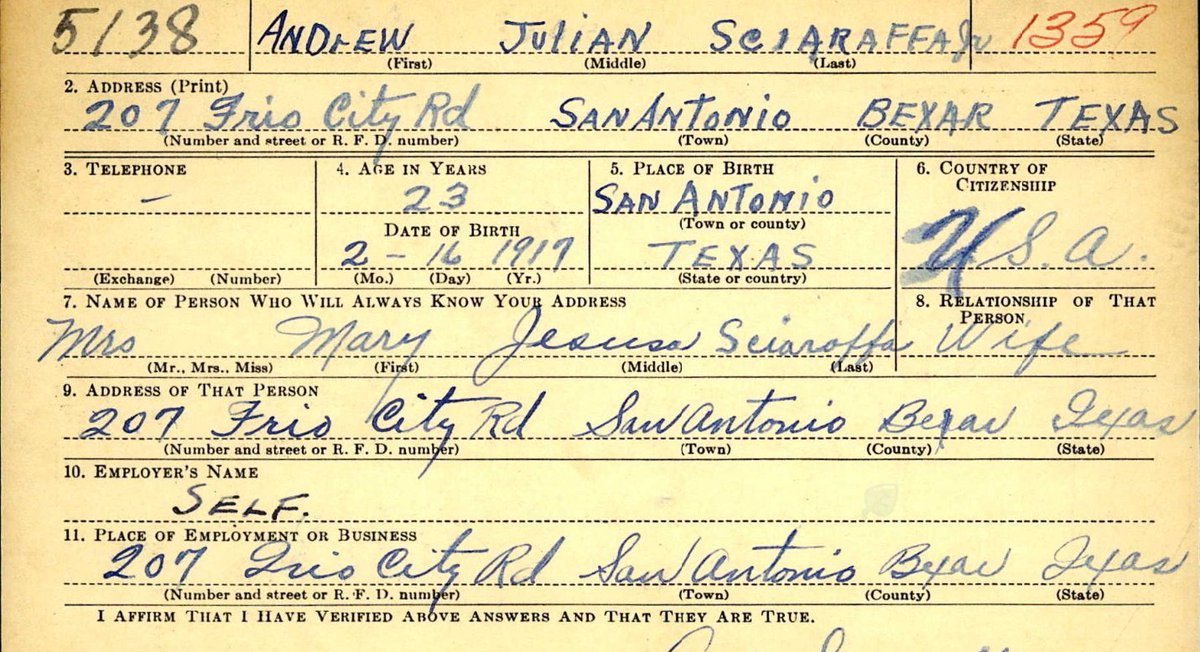 5138 ANDrEW JULIAN SCIARAFFA Jr 1359
(First) (Middle) (Last)
2. ADDRESS (Print)
207 Frio City Rd SAN ANTONIO BEXAR TEXAS
(Number and street or R. F. D. number) (Town) (County) (State)
3. TELEPHONE 4. AGE IN YEARS 5. PLACE OF BIRTH 6. COUNTRY OF CITIZENSHIP
– 23 SAN ANTONIO
(Town or county)
DATE OF BIRTH
2 - 16 1917 TEXAS U.S.A.
(Exchange) (Number) (Mo.) (Day) (Yr.) (State or country)
7. NAME OF PERSON WHO WILL ALWAYS KNOW YOUR ADDRESS 8. RELATIONSHIP OF THAT PERSON
Mrs Mary Jesusa Sciaraffa Wife
(Mr., Mrs., Miss) (First) (Middle) (Last)
9. ADDRESS OF THAT PERSON
207 Frio City Rd San Antonio Bexar Texas
(Number and street or R. F. D. number) (Town) (County) (State)
10. EMPLOYER'S NAME
SELF.
11. PLACE OF EMPLOYMENT OR BUSINESS
207 Frio City Rd San Antonio Bexar Texas
(Number and street or R. F. D. number) (Town) (County) (State)
I AFFIRM THAT I HAVE VERIFIED ABOVE ANSWERS AND THAT THEY ARE TRUE.